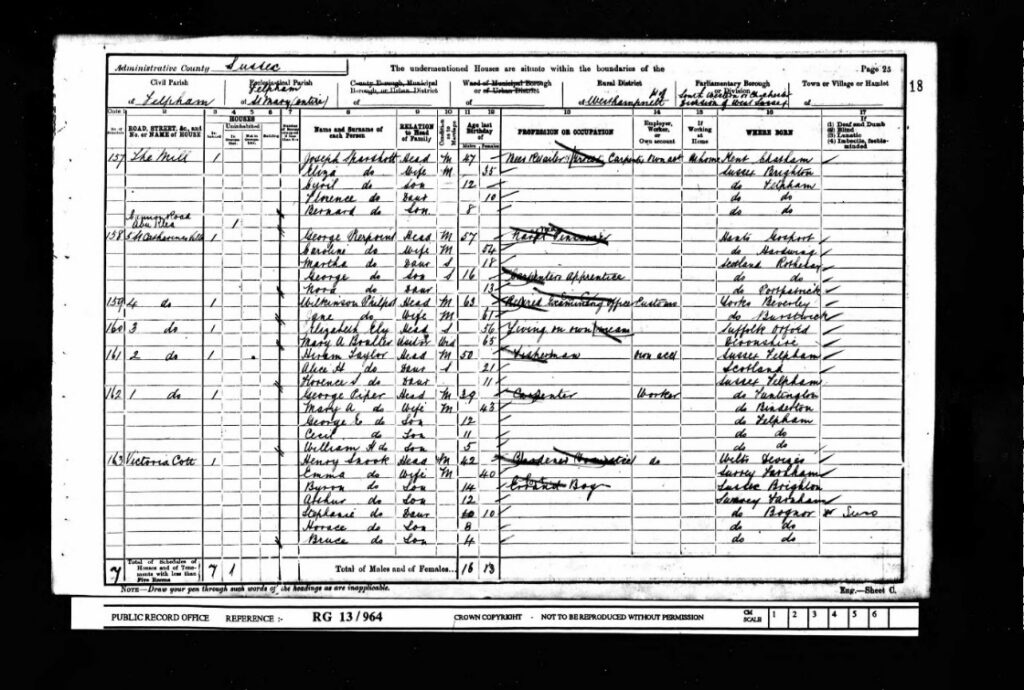 Administrative County Sussex The undermentioned Houses are situate within the boundaries of the Page 25
Civil Parish Ecclesiastical Parish County Borough, Municipal Borough, or Urban District Ward of Municipal Borough or of Urban District Rural District Parliamentary Borough or Division Town or Village or Hamlet
of Felpham Felpham St Mary (entire) of Westhampnett 18
ROAD, STREET, &c., and No. or NAME of HOUSE HOUSES Name and Surname of each Person RELATION to Head of Family Age last Birthday of PROFESSION OR OCCUPATION Employer, Worker, or Own account If Working at Home WHERE BORN (1) Deaf and Dumb (2) Blind (3) Lunatic (4) Imbecile, feeble-minded
157 The Mill 1 Joseph Marshott Head M 47 Carpenter Own acct At home Kent Chatham
Eliza do Wife M 35 Sussex Brighton
Cyril do Son 12 do Felpham
Florence do Daur 10 do do
Bernard do Son 8 do do
Road 1
158 5 St Catherines 1 George Pierpoint Head M 57 Navy Pensioner Hants Gosport
Caroline do Wife M 54 do
Martha do Daur S 18 Scotland Rothesay
George do Son S 16 Carpenters Apprentice do do
Nora do Daur 13 do Portpatrick
159 4 do 1 Wilkinson Philpot Head M 63 Retired Examining Officer Customs Yorks Beverley
Jane do Wife M 61 do Burstwick
160 3 do 1 Elizabeth Ely Head S 56 Living on own means Suffolk Orford
Mary A Visitor Wid 65 Devonshire
161 2 do 1 Hiram Taylor Head M 50 Fisherman Own acct Sussex Felpham
Alice H do Daur S 21 Scotland
Florence S do Daur 11 Sussex Felpham
162 1 do 1 George Piper Head M 39 Carpenter Worker do Funtington
Mary A do Wife M 43 do Binderton
George E do Son 12 do Felpham
Cecil do Son 11 do do
William H do Son 5 do do
163 Victoria Cott 1 Henry Snook Head M 42 Gardener Domestic do Wilts Devizes
Emma do Wife M 40 Surrey Farnham
Byron do Son 14 Errand Boy Sussex Brighton
Arthur do Son 12 Surrey Farnham
Stephanie do Daur 10 do Bognor
Horace do Son 8 do do
Bruce do Son 4 do do
7 Total of Schedules of Houses and of Tenements with less than Five Rooms 7 1 Total of Males and of Females... 16 13
NOTE—Draw your pen through such words of the headings as are inapplicable. Eng.—Sheet C.
PUBLIC RECORD OFFICE REFERENCE :- RG 13/964 CROWN COPYRIGHT - NOT TO BE REPRODUCED WITHOUT PERMISSION CM SCALE 1 2 3 4 5 6